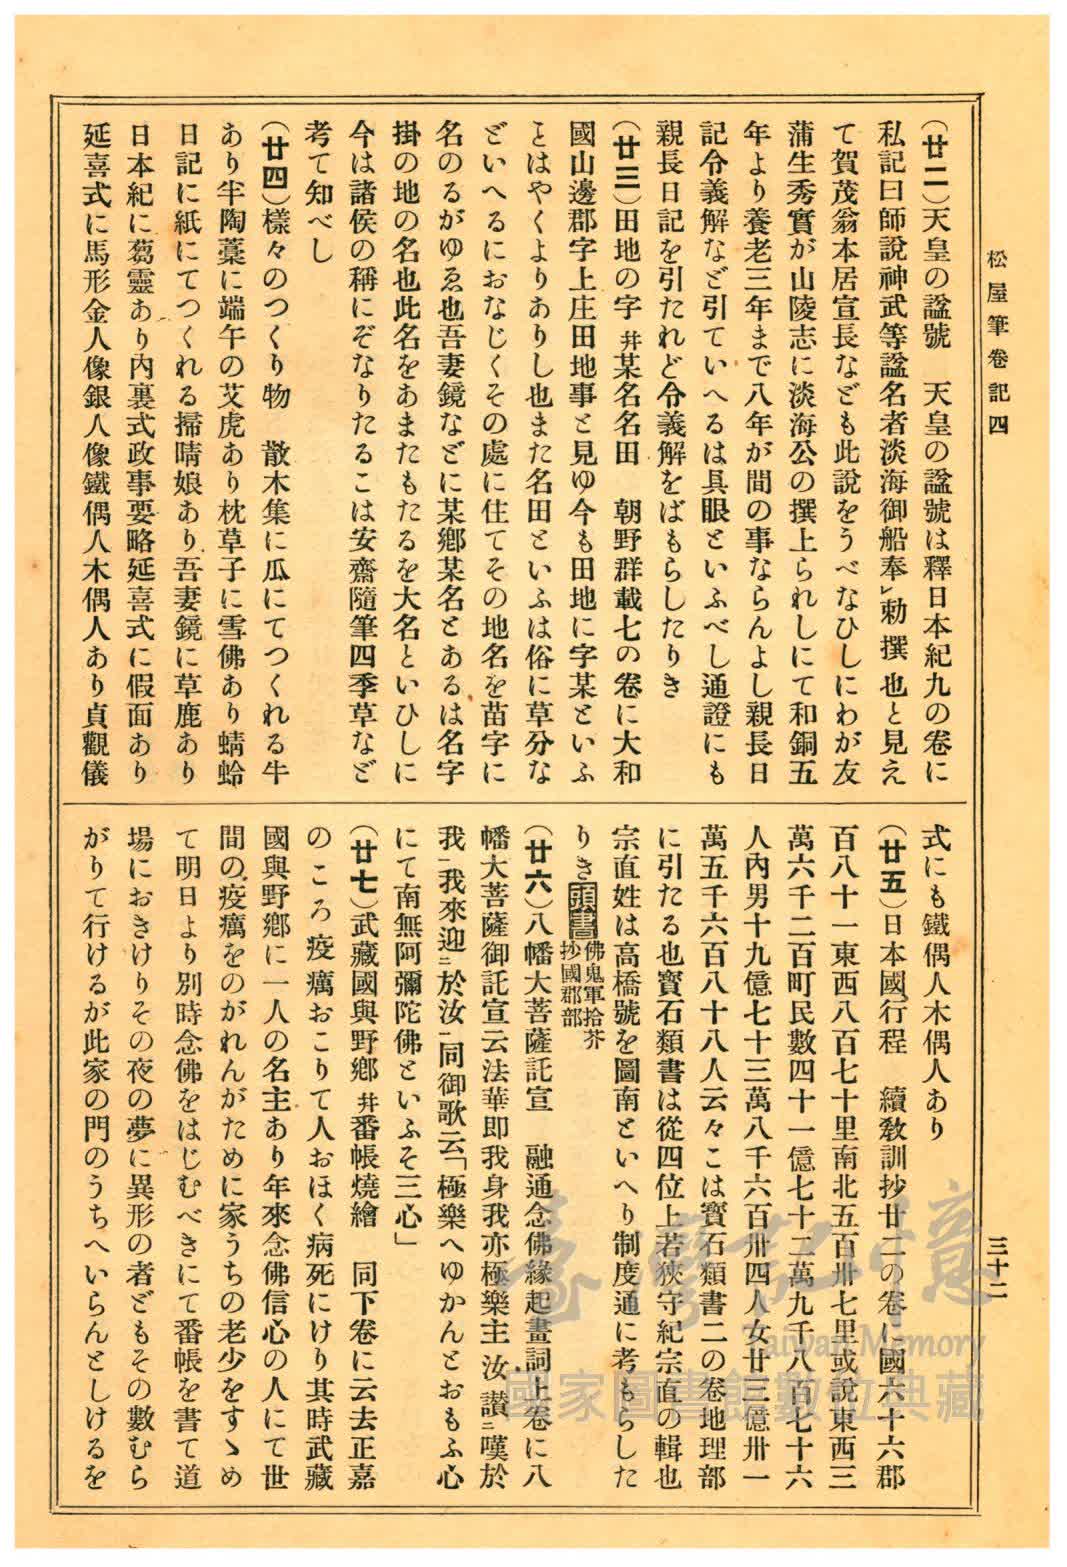 松屋筆卷記四
三十二
(廿二)天皇の諡號　天皇の諡號は釋日本紀九の卷に
私記曰師說神武等諡名者淡海御船奉㆑勅撰也と見え
て賀茂翁本居宣長なども此說をうべなひしにわが友
蒲生秀實が山陵志に淡海公の撰上られしにて和銅五
年より養老三年まで八年が間の事ならんよし親長日
記令義解など引ていへるは具眼といふべし通證にも
親長日記を引たれど令義解をばもらしたりき
(廿三)田地の字 幷某名名田　朝野群載七の卷に大和
國山邊郡字上庄田地事と見ゆ今も田地に字某といふ
ことはやくよりありし也また名田といふは俗に草分な
どいへるにおなじくその處に住てその地名を苗字に
名のるがゆゑ也吾妻鏡などに某鄕某名とあるは名字
掛の地の名也此名をあまたもたるを大名といひしに
今は諸侯の稱にぞなりたるこは安齋隨筆四季草など
考て知べし
(廿四)樣々のつくり物　散木集に瓜にてつくれる牛
あり半陶藁に端午の艾虎あり枕草子に雪佛あり蜻蛉
日記に紙にてつくれる掃晴娘あり吾妻鏡に草鹿あり
日本紀に蒭靈あり內裏式政事要略延喜式に假面あり
延喜式に馬形金人像銀人像鐵偶人木偶人あり貞觀儀
式にも鐵偶人木偶人あり
(廿五)日本國行程　續敎訓抄廿二の卷に國六十六郡
百八十一東西八百七十里南北五百卅七里或說東西三
萬六千二百町民數四十一億七十二萬九千八百七十六
人內男十九億七十三萬八千六百卅四人女廿三億卅一
萬五千六百八十八人云々こは寶石類書二の卷地理部
に引たる也寶石類書は從四位上若狹守紀宗直の輯也
宗直姓は高橋號を圖南といへり制度通に考もらした
りき頭書佛鬼軍拾芥
抄國郡部
(廿六)八幡大菩薩託宣　融通念佛緣起畫詞上卷に八
幡大菩薩御託宣云法華即我身我亦極樂主汝讚㆓嘆於
我㆒我來迎㆓於汝㆒同御歌云「極樂へゆかんとおもふ心
にて南無阿彌陀佛といふぞ三心」
(廿七)武藏國與野鄕 幷番帳燒繪　同下卷に云去正嘉
のころ疫癘おこりて人おほく病死にけり其時武藏
國與野鄕に一人の名主あり年來念佛信心の人にて世
間の疫癘をのがれんがために家うちの老少をすゝめ
て明日より別時念佛をはじむべきにて番帳を書て道
場におきけりその夜の夢に異形の者どもその數むら
がりて行けるが此家の門のうちへいらんとしけるを
臺灣記憶
Taiwan Memory
國家圖書館數位典藏